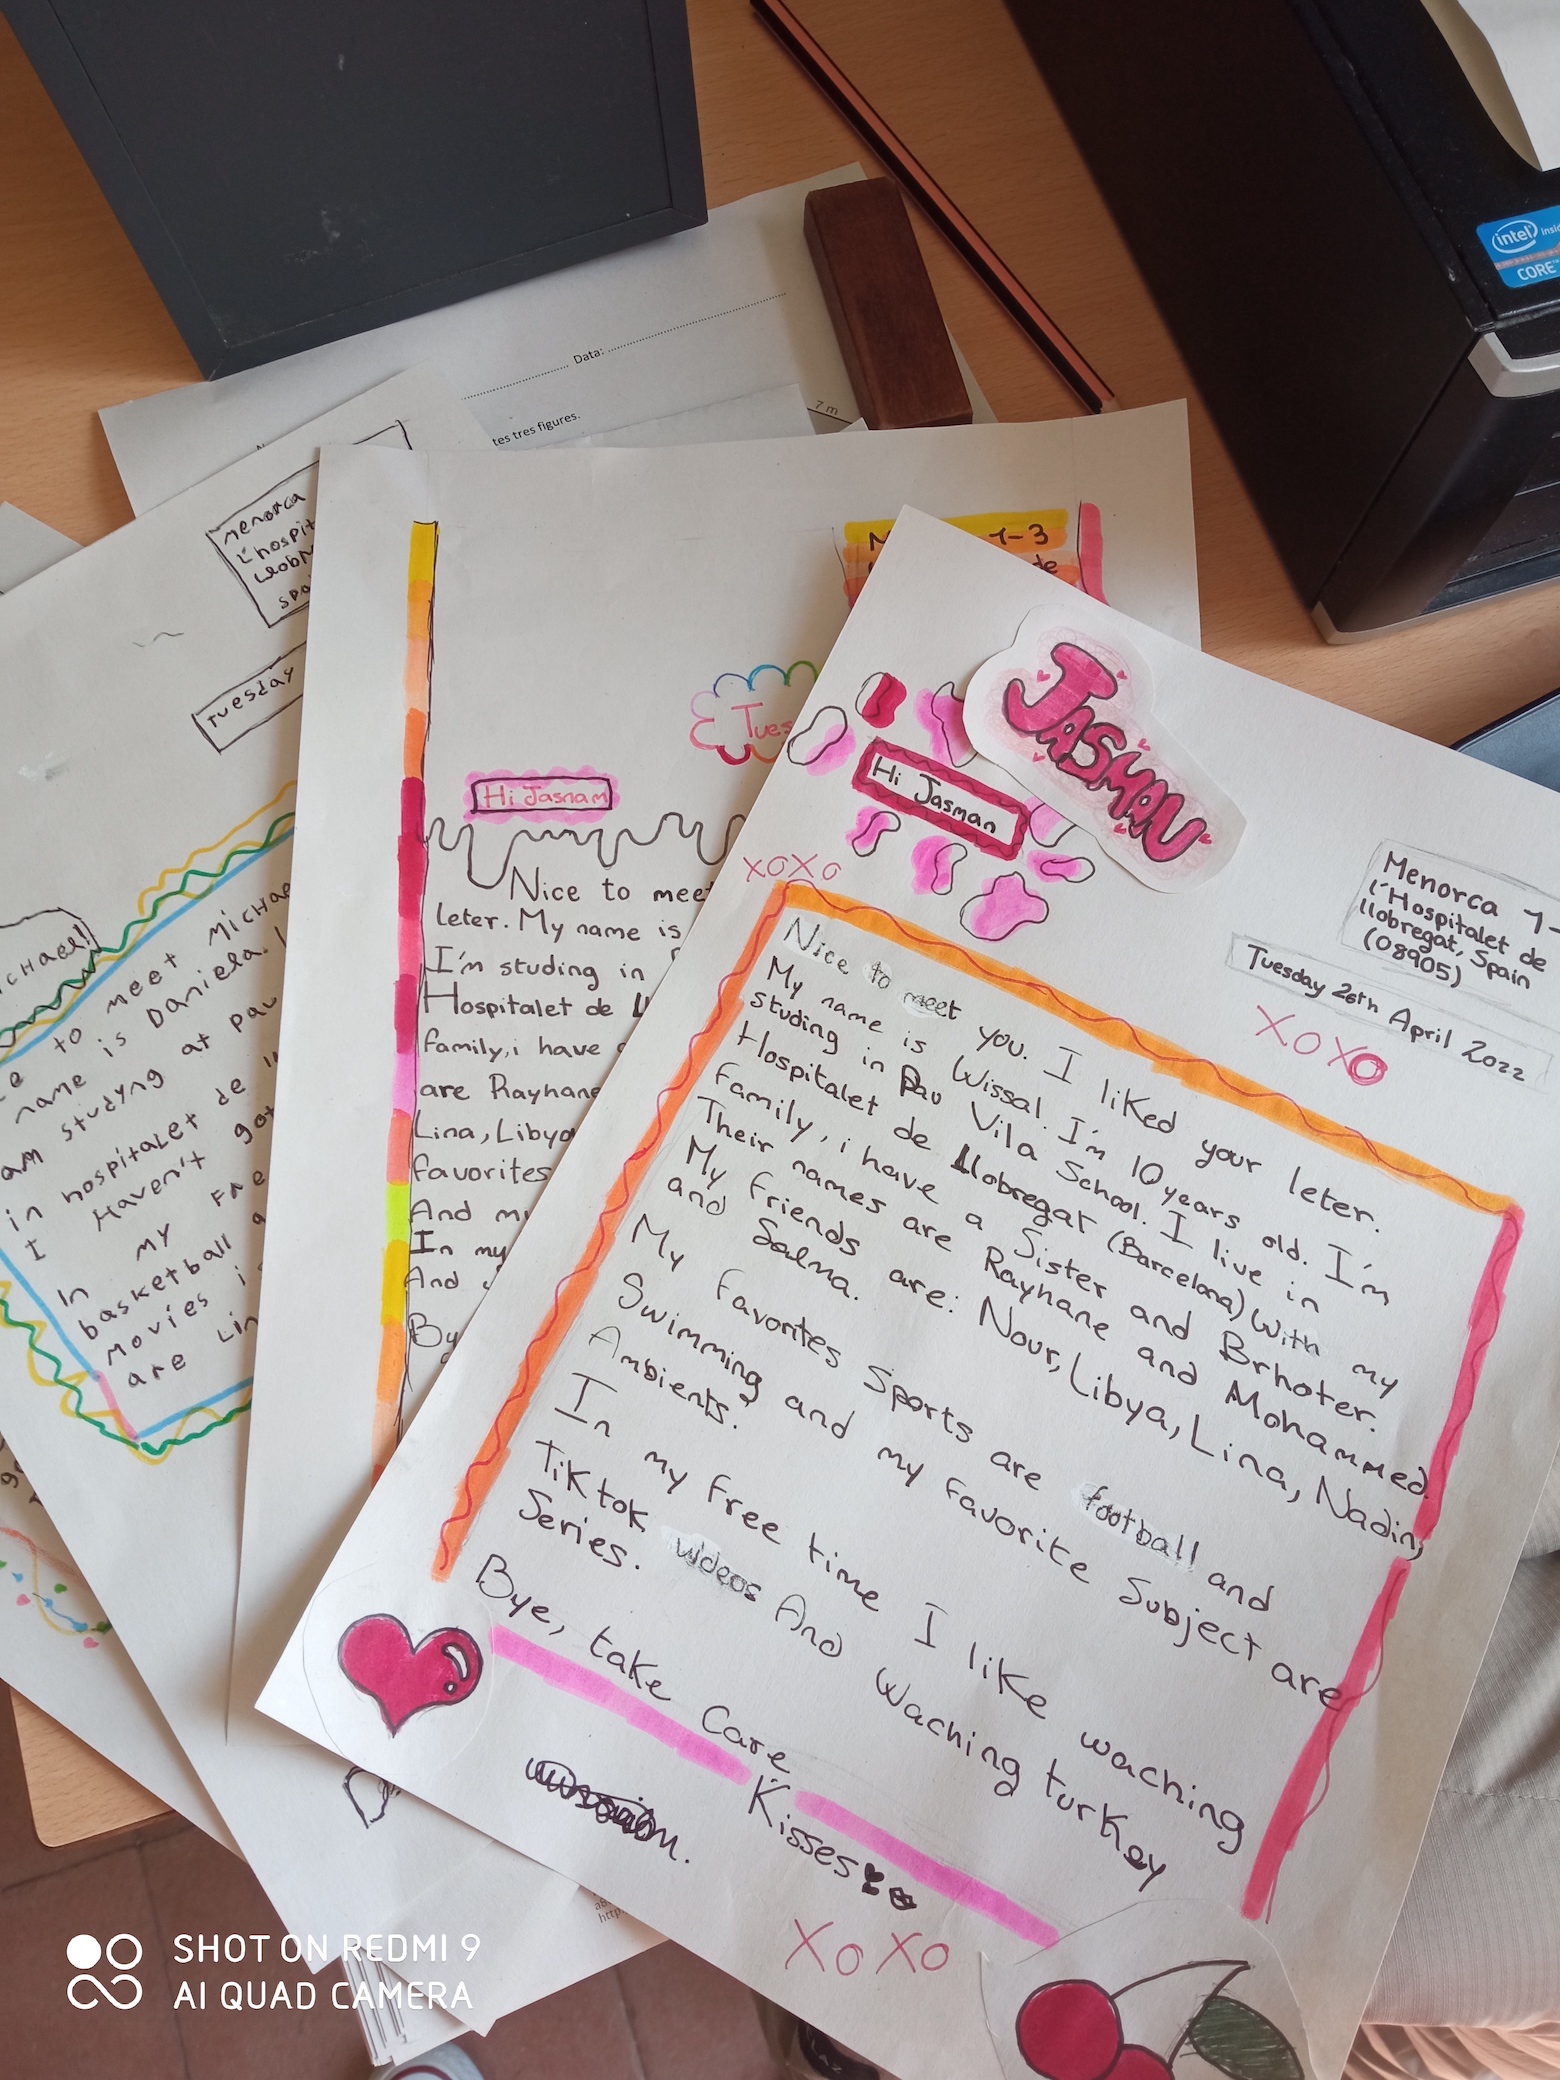 intel
insid
CORE
Data:
tes tres figures.
7 m
menorca
L'hospit
spa
Tuesday
ICHAEL!
to meet MICHAE
name is Daniela. I
am studyng at pau
in hospitalet de ll
I Haven't got
In my Fre
basketball a
Movies is
are Lin
1-3
de
Tues
Hi Jasnam
Nice to meet
leter. My name is
I'm studing in
Hospitalet de ll
family, i have
are Rayhane
Lina, Libya
favorites
And my
In my
And
By
JASMAN
Hi Jasman
XOXO
Menorca 1-
L'Hospitalet de
llobregat, Spain
(08905)
Tuesday 26th April 2022
XOXO
Nice to meet you. I liked your leter.
My name is Wissal. I'm 10 years old. I'm
studing in Pau Vila School. I live in
Hospitalet de llobregat (Barcelona) With my
family, i have a Sister and Brhoter.
Their names are Rayhane and Mohammed.
My friends are: Nour, Libya, Lina, Nadin,
and Salma.
My favorites Sports are football and
Swimming and my favorite Subject are
Ambients.
In my free time I like waching
Tiktok videos And Waching turkey
Series.
Bye, take Care
Kisses
XOXO
SHOT ON REDMI 9
AI QUAD CAMERA